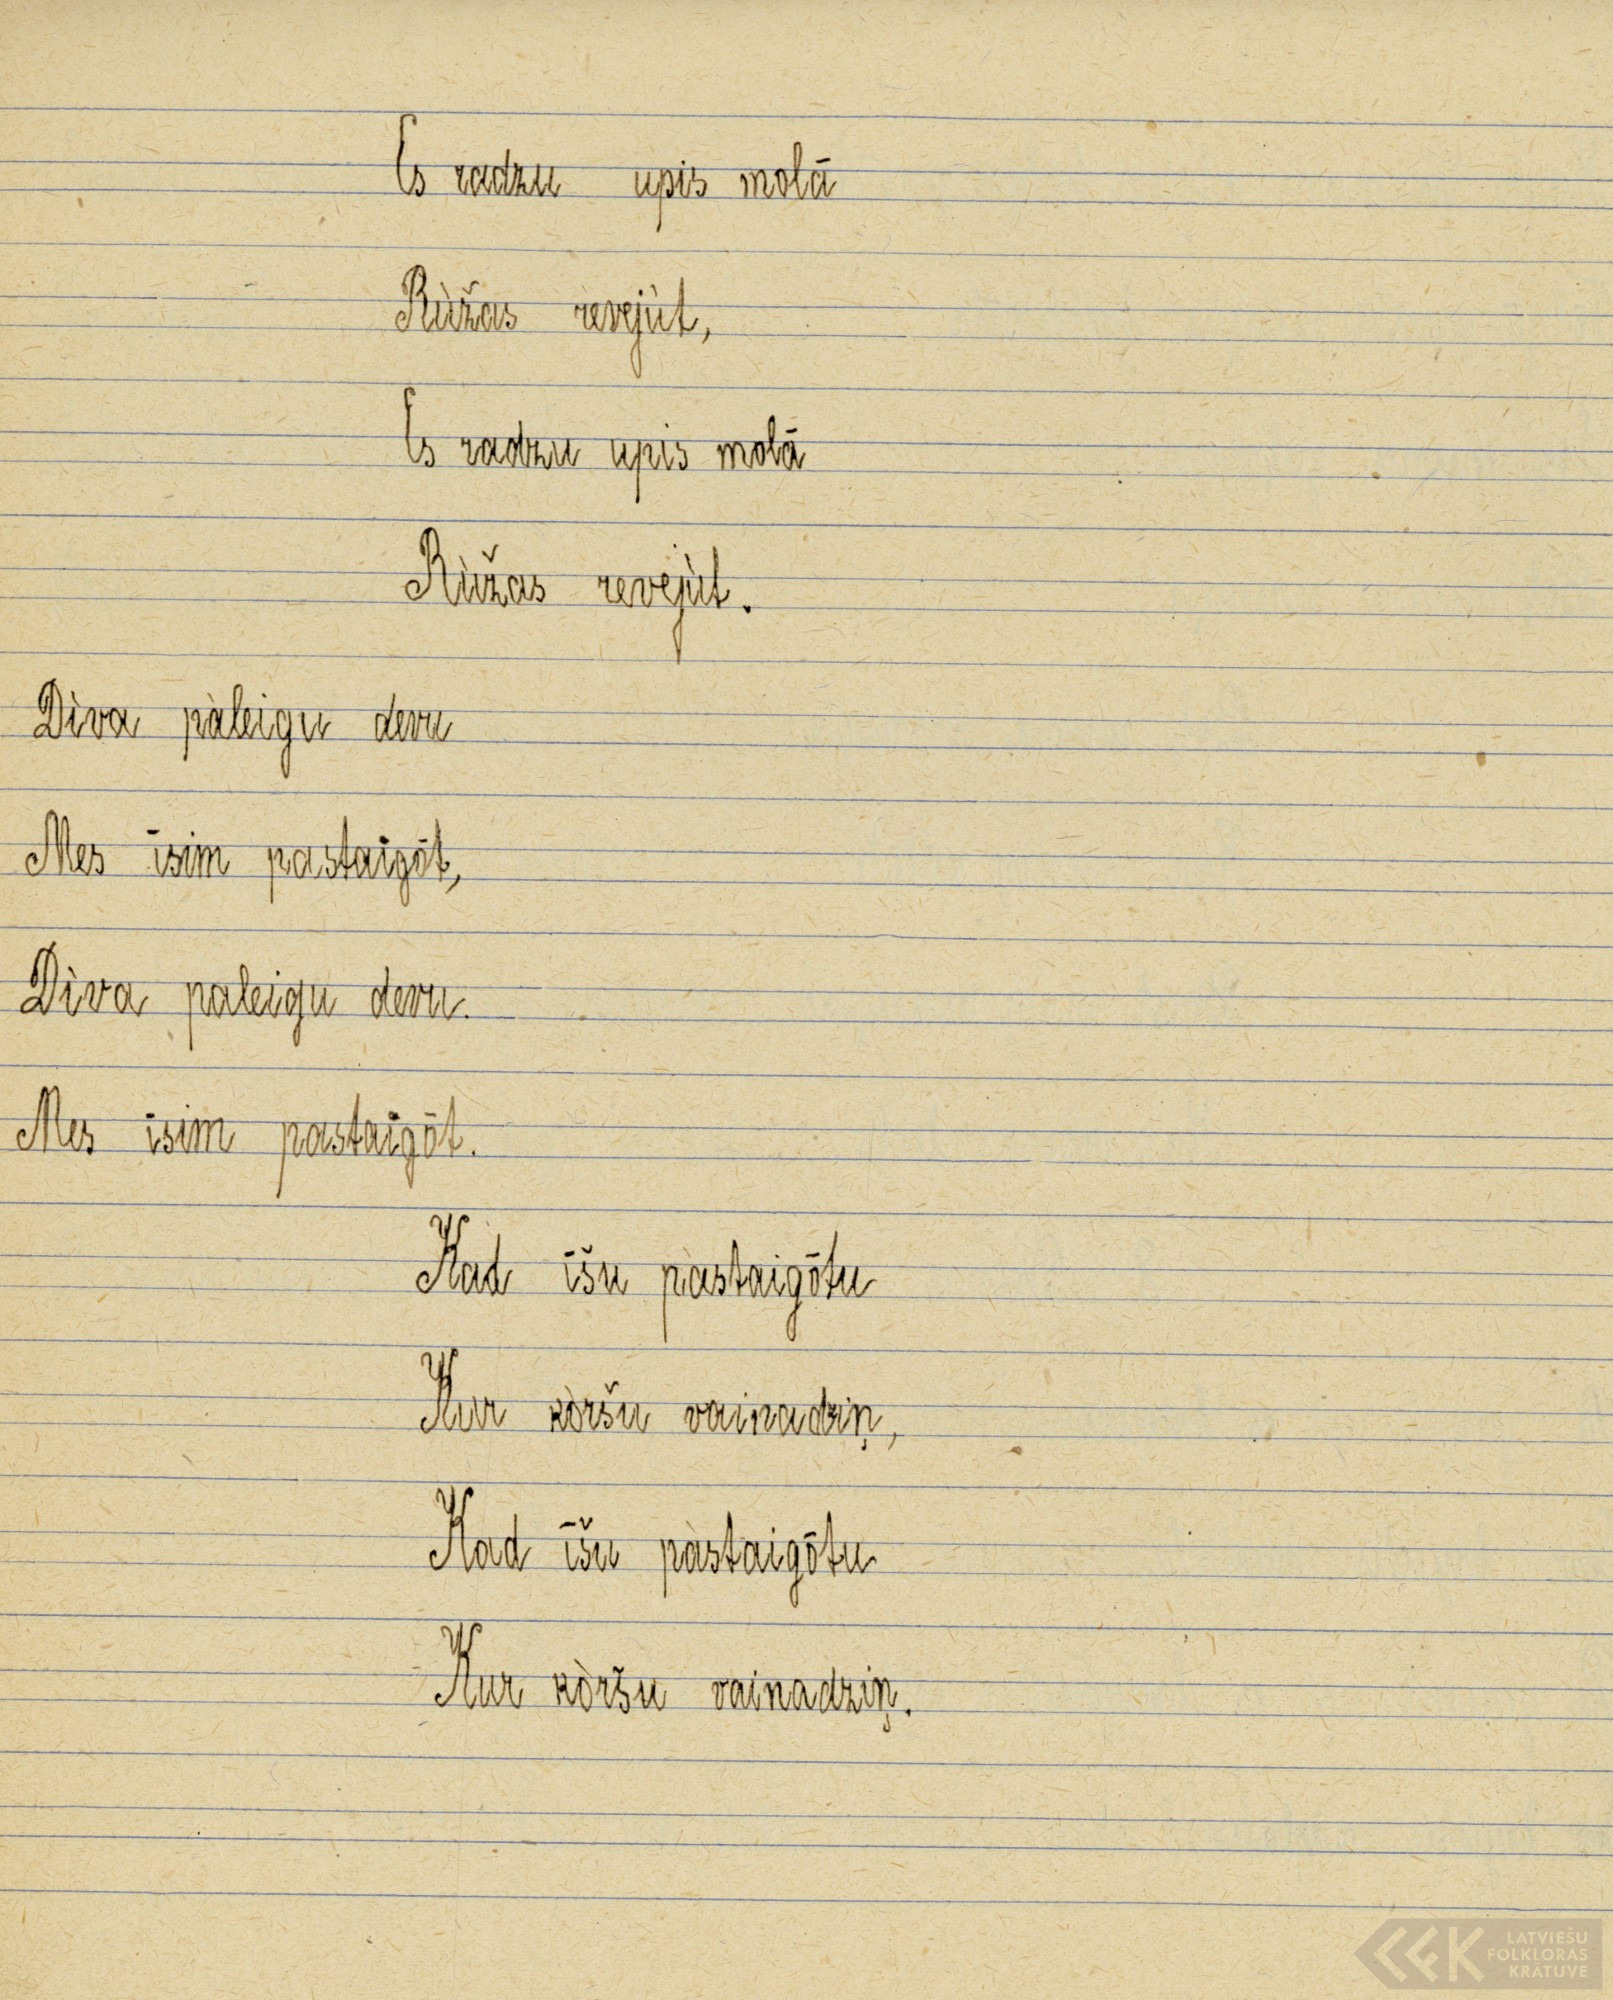 Es radzu upis molā
Rùžas revejùt,
Es radzu upis molā
Rùžas revejùt.
Dìva pàleigu devu
Mes īsim pastaigōt,
Dìva paleigu devu.
Mes īsim pastaigōt.
Kad īšu pàstaigōtu
Kur kòršu vainadziņ,
Kad īšu pàstaigōtu
Kur kòršu vainadziņ.
LATVIEŠU
FOLKLORAS
KRĀTUVE